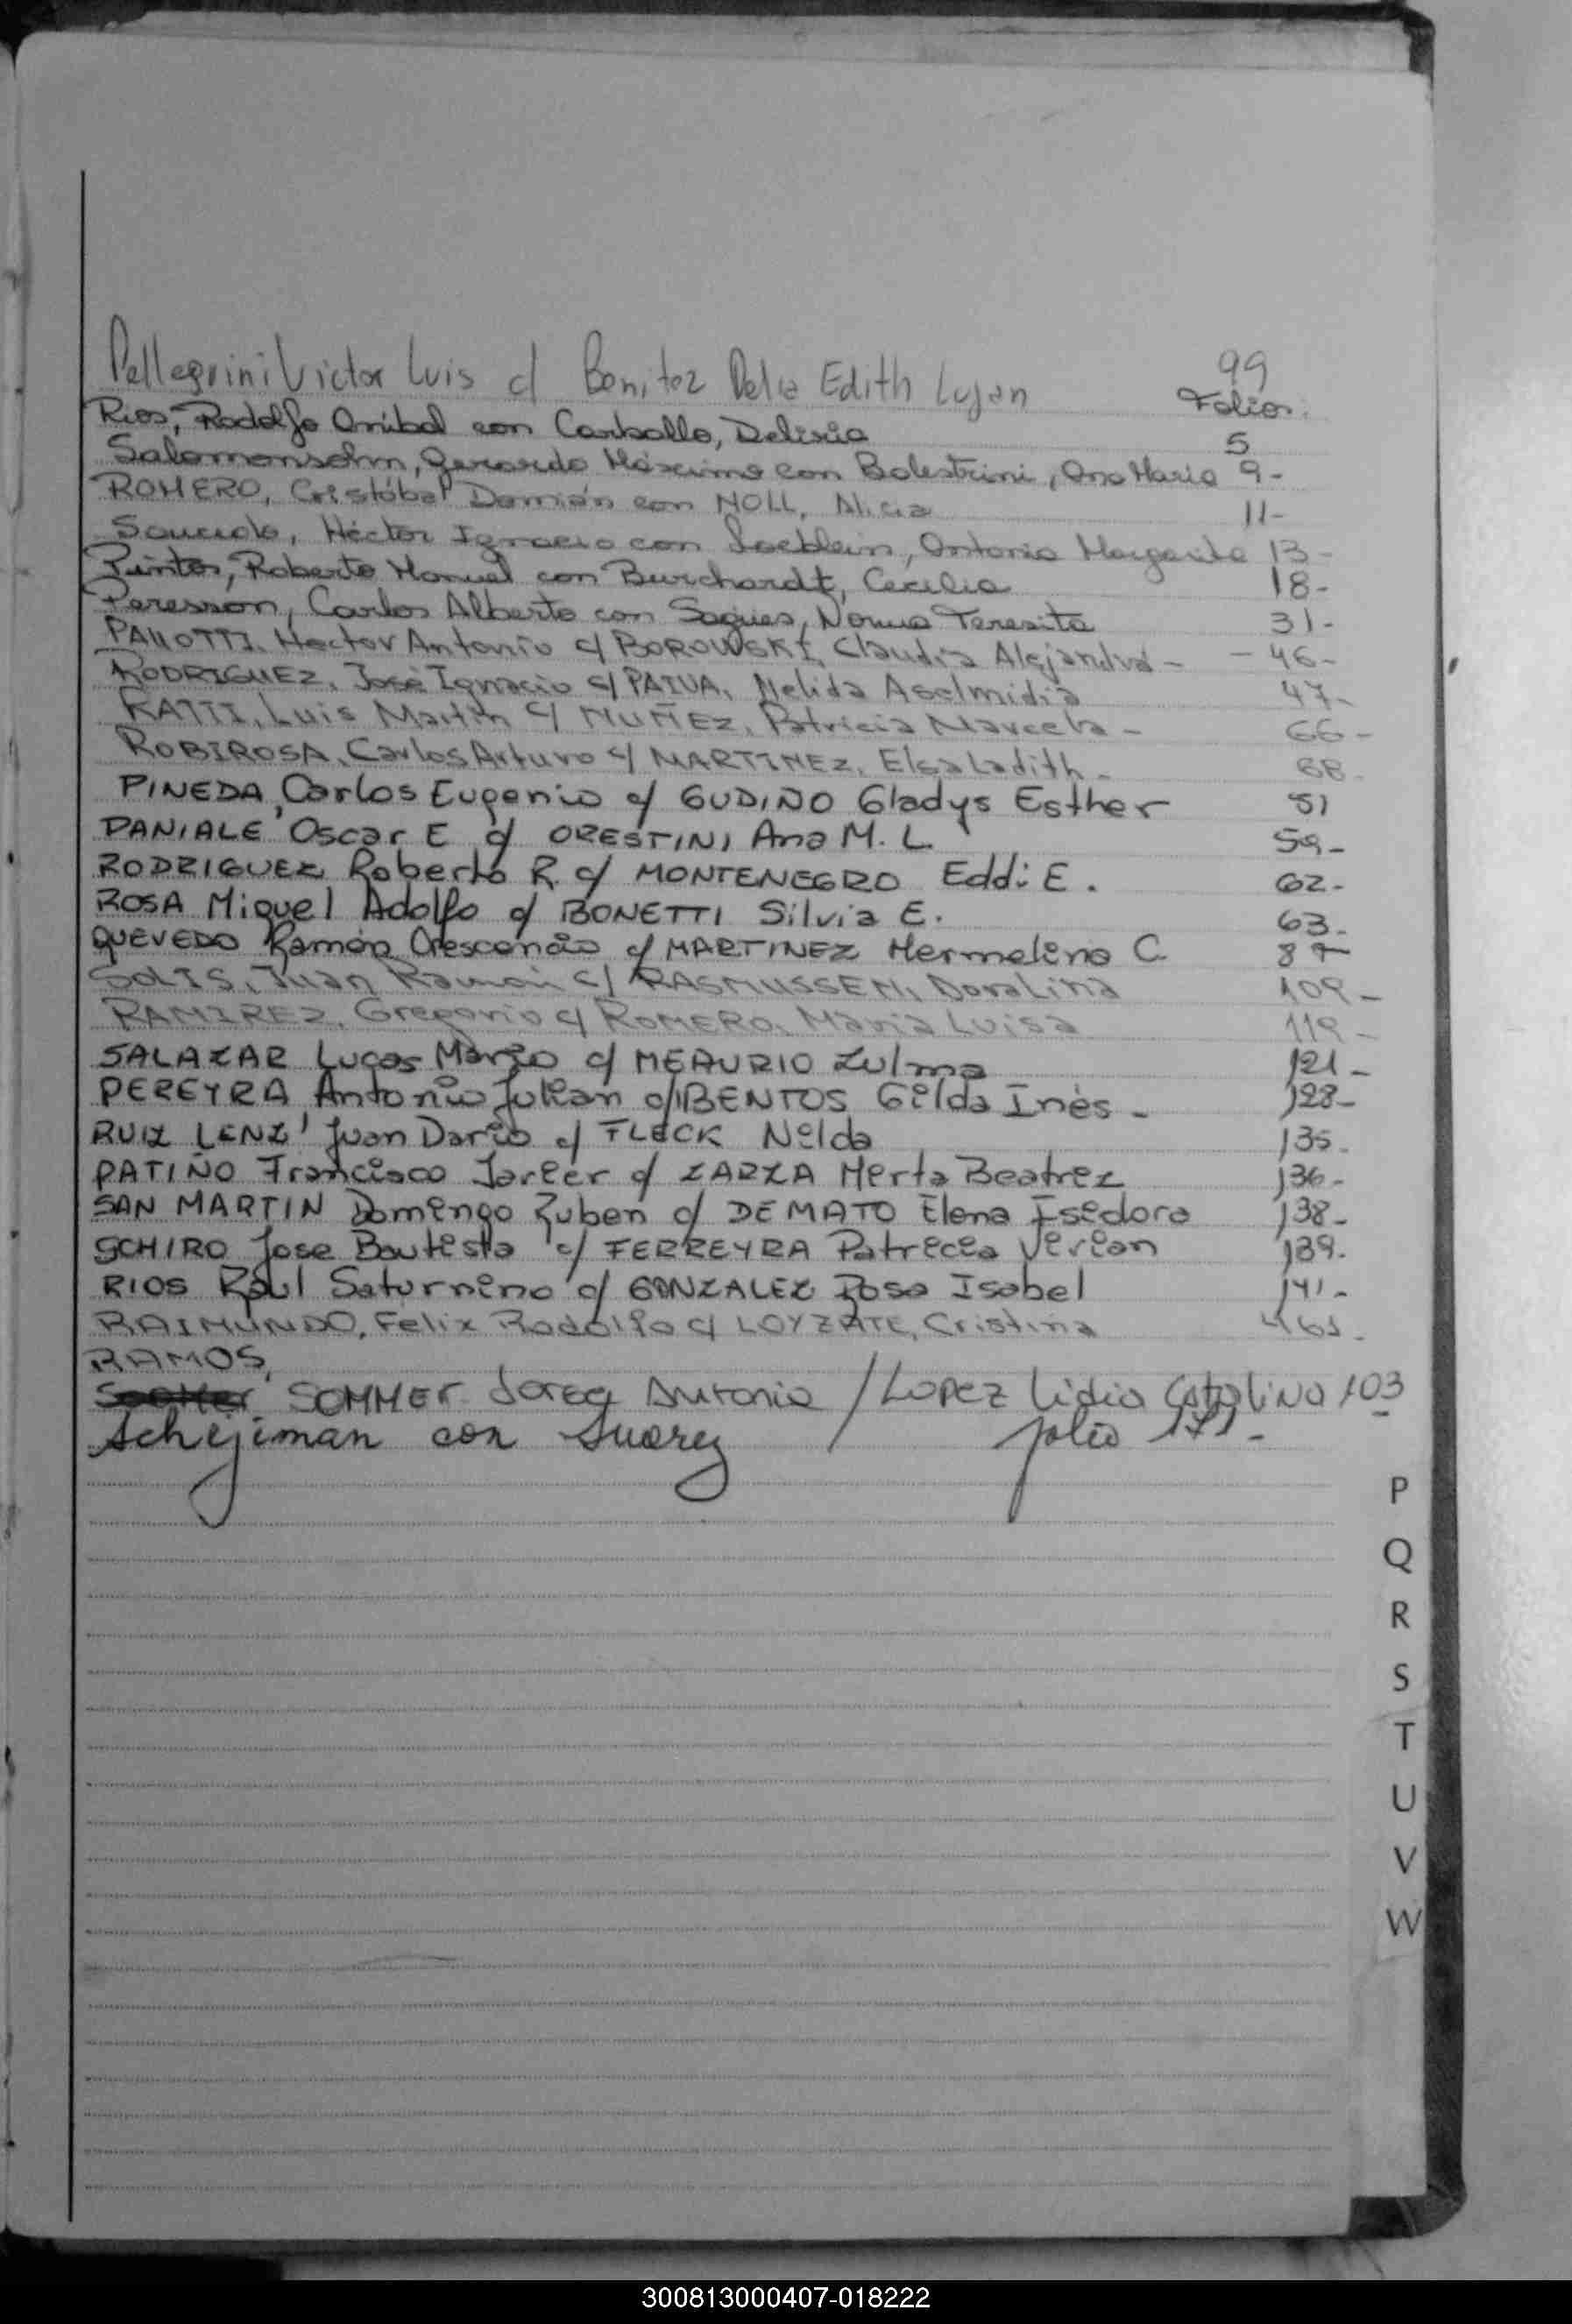 Pellegrini Victor Luis c/ Benitez Delia Edith Lujan 99
Folios:
Rios, Rodolfo Anibal con Carballo, Delicia 5
Salomonsohn, Gerardo Máximo con Balestrini, Ana Maria 9-
ROMERO, Cristóbal Damián con NOLL, Alicia 11-
Saucedo, Héctor Ignacio con Antonia Margarita 13-
Pintos, Roberto Manuel con Burchardt, Cecilia 18-
Peresson, Carlos Alberto con Sagues, Norma Teresita 31-
PALLOTTI, Hector Antonio c/ BOROWSKI, Claudia Alejandra - - 46-
RODRIGUEZ, José Ignacio c/ PAIVA, Nelida Aselmidia 47-
RATTI, Luis Martin c/ MUÑEZ, Patricia Marcela - 66-
ROBIROSA, Carlos Arturo c/ MARTINEZ, Elsa Ladith - 68-
PINEDA, Carlos Eugenio c/ GUDIÑO Gladys Esther 51
DANIALE Oscar E c/ ORESTINI Ana M. L. 59-
RODRIGUEZ Roberto R. c/ MONTENEGRO Eddi E. 62-
ROSA Miguel Adolfo c/ BONETTI Silvia E. 63-
QUEVEDO Ramón Crescencio c/ MARTINEZ Hermelina C. 87
SOLIS, Juan Ramon c/ RASMUSSEN, Doralina 109-
RAMIREZ, Gregorio c/ ROMERO, Maria Luisa 119-
SALAZAR Lucas Mario c/ MEAURIO Zulma 121-
PEREYRA Antonio Julian c/ BENTOS Gilda Inés - 128-
RUIZ LENZ, Juan Dario c/ FLECK Nilda 135-
PATIÑO Francisco Javier c/ ZARZA Mirta Beatriz 136-
SAN MARTIN Domingo Ruben c/ DE MATO Elena Isidora 138-
SCHIRO Jose Bautista c/ FERREYRA Patricia Virian 139-
RIOS Raul Saturnino c/ GONZALEZ Rosa Isabel 141-
RAIMUNDO, Felix Rodolfo c/ LOYZATE, Cristina 161-
RAMOS,
SOMMER Jorge Antonio / LOPEZ Lidia Catalina 103
Schejiman con Suarez / folio 171-
P
Q
R
S
T
U
V
W
300813000407-018222